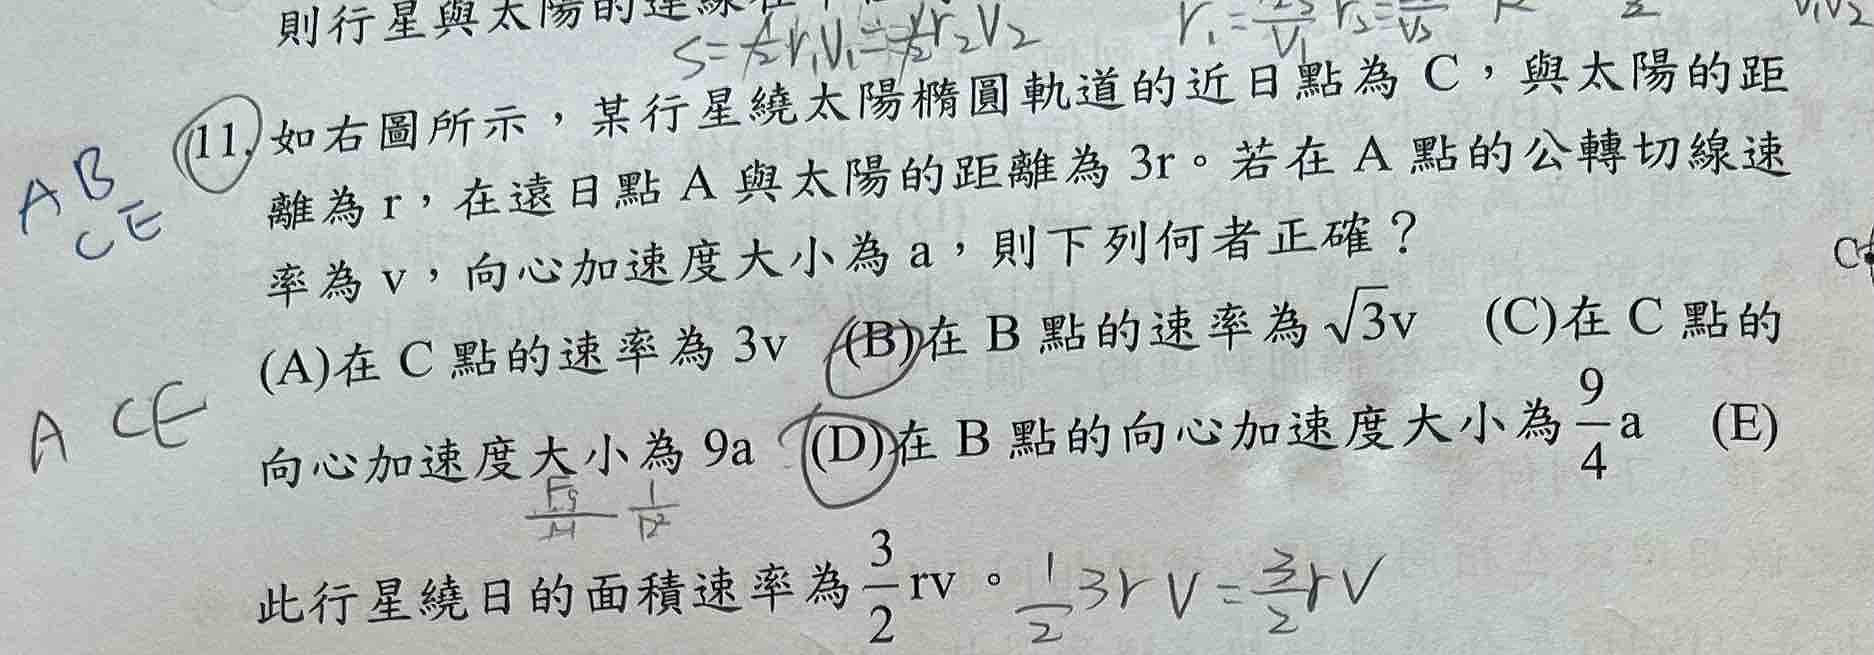 則行星與太陽的連線在
S=½r₁V₁=½r₂V₂
11.如右圖所示，某行星繞太陽橢圓軌道的近日點為 C，與太陽的距
離為 r，在遠日點 A 與太陽的距離為 3r。若在 A 點的公轉切線速
率為 v，向心加速度大小為 a，則下列何者正確？
(A)在 C 點的速率為 3v (B)在 B 點的速率為√3v (C)在 C 點的
向心加速度大小為 9a (D)在 B 點的向心加速度大小為 9/4 a (E)
此行星繞日的面積速率為 3/2 rv。 1/2 3rV=3/2 rV
AB
CE
ACE
Fg/M 1/R²
C